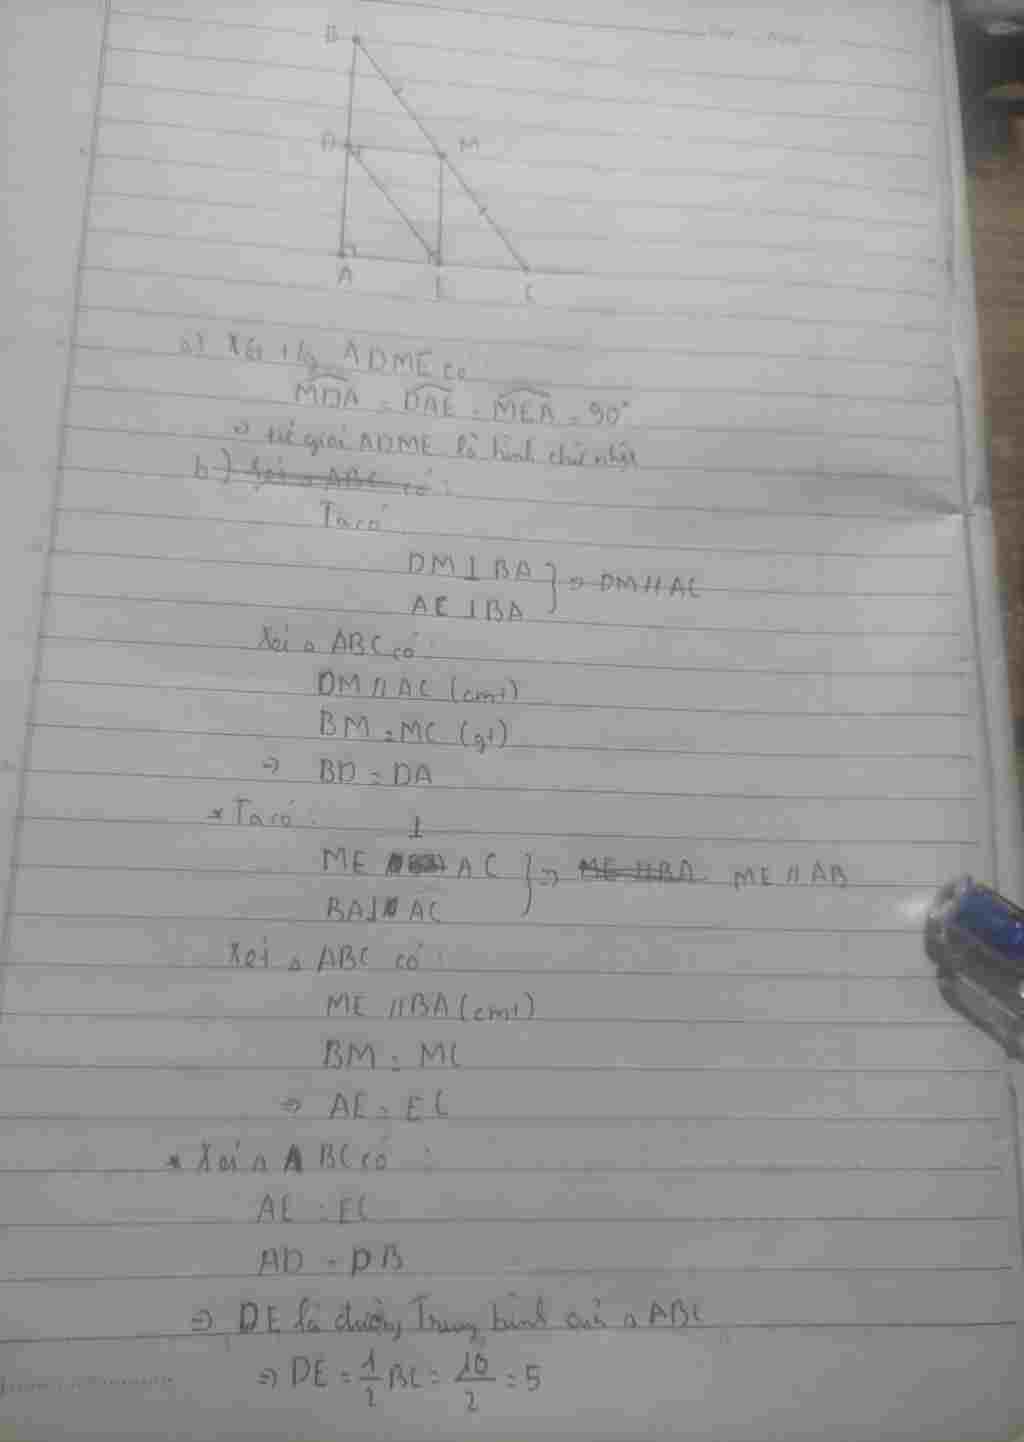 B
D
M
A
E
C
a) Xét t/g ADME có
MDA = DAE = MEA = 90°
=> tứ giác ADME là hình chữ nhật
b) Xét △ ABC có :
Ta có
DM ⊥ BA } => DM // AC
AE ⊥ BA
Xét △ ABC có :
DM // AC (cmt)
BM = MC (gt)
=> BD = DA
* Ta có :
ME ⊥ AC } => ME // BA ME // AB
BA ⊥ AC
Xét △ ABC có :
ME // BA (cmt)
BM = MC
=> AE = EC
* Xét △ ABC có :
AE = EC
AD = DB
=> DE là đường Trung bình của △ ABC
=> DE = 1/2 BC = 10/2 = 5